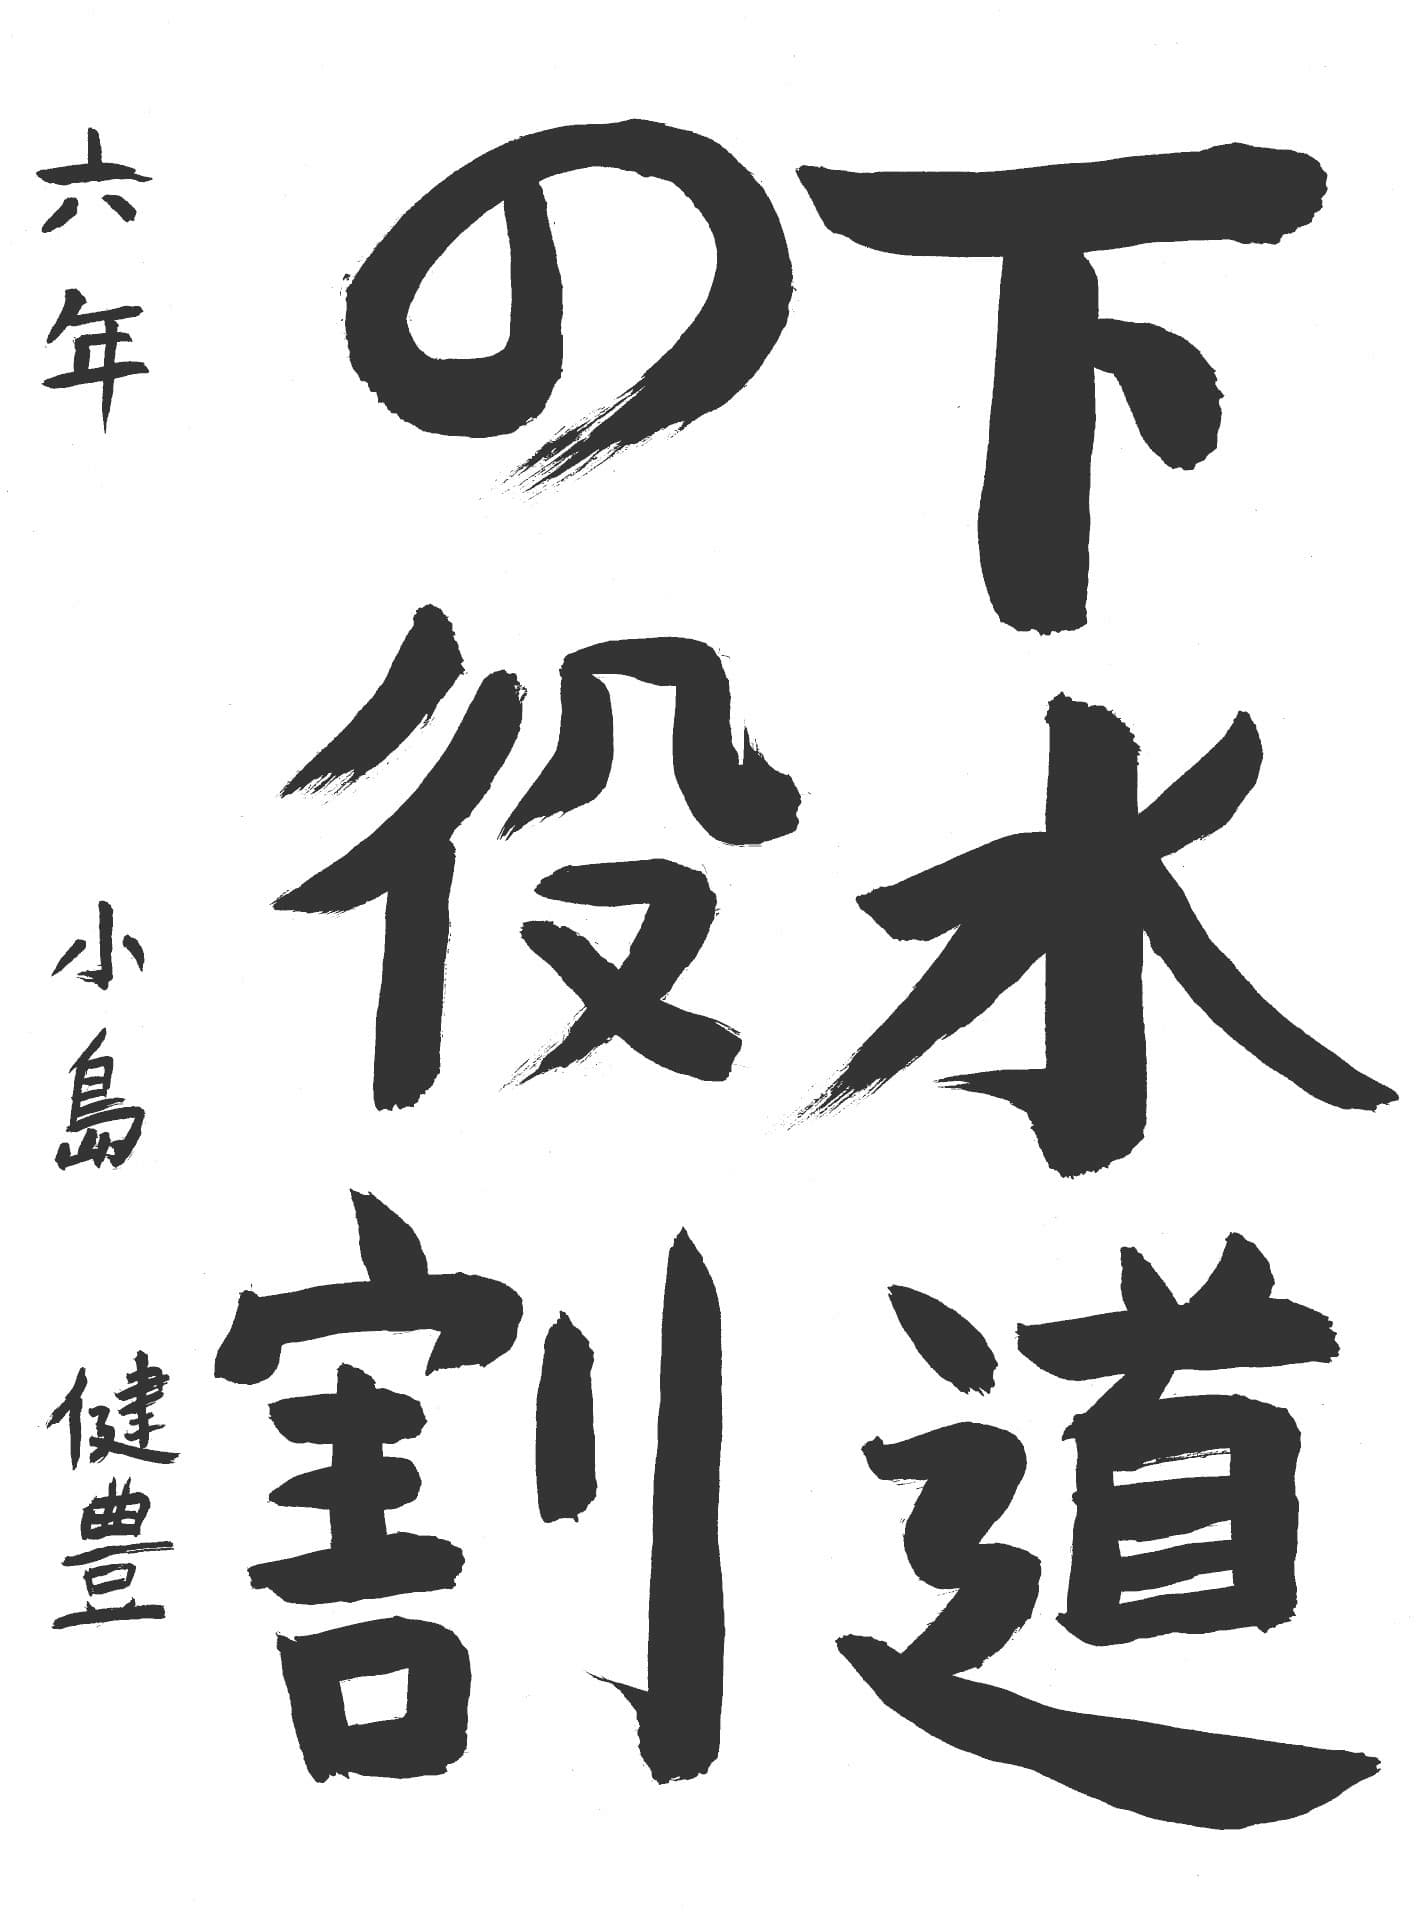 下水道
の役割
六年 小島 健豊